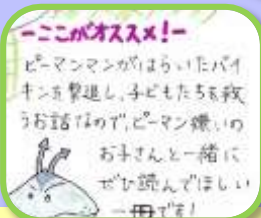 ーここがオススメ!ー
ピーマンマンがはらいたバイ
キンを撃退し、子どもたちを救
うお話なので、ピーマン嫌いの
お子さんと一緒に
ぜひ読んでほしい
一冊です!